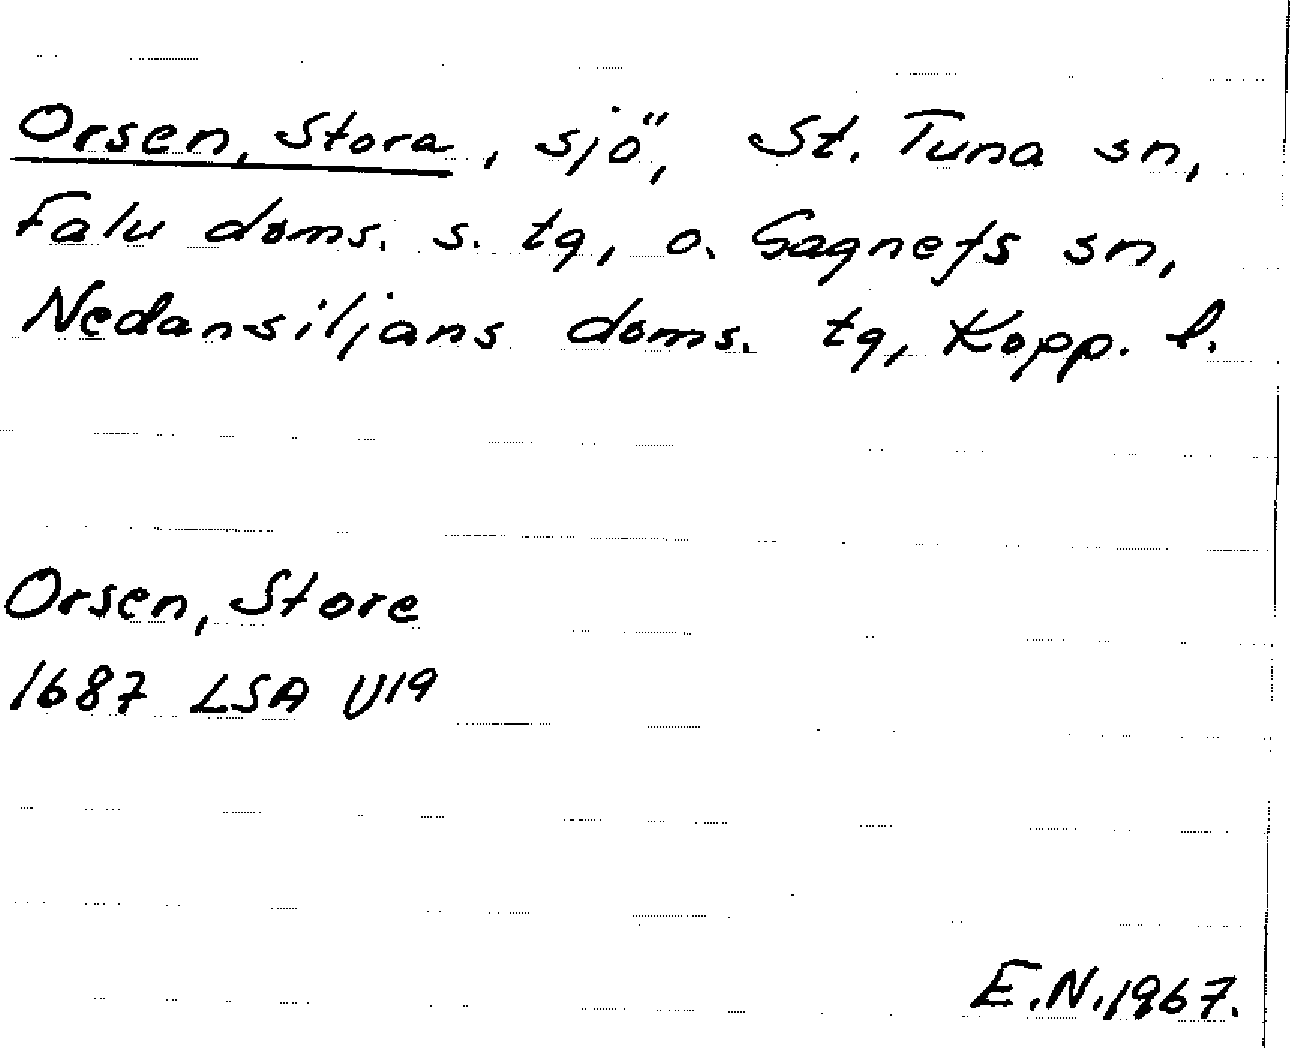 Orsen, Stora, sjö, St. Tuna sn,
Falu doms. s. tg, o. Gagnefs sn,
Nedansiljans doms. tg, Kopp. l.
Orsen, Store
1687 LSA U19
E.N. 1967.